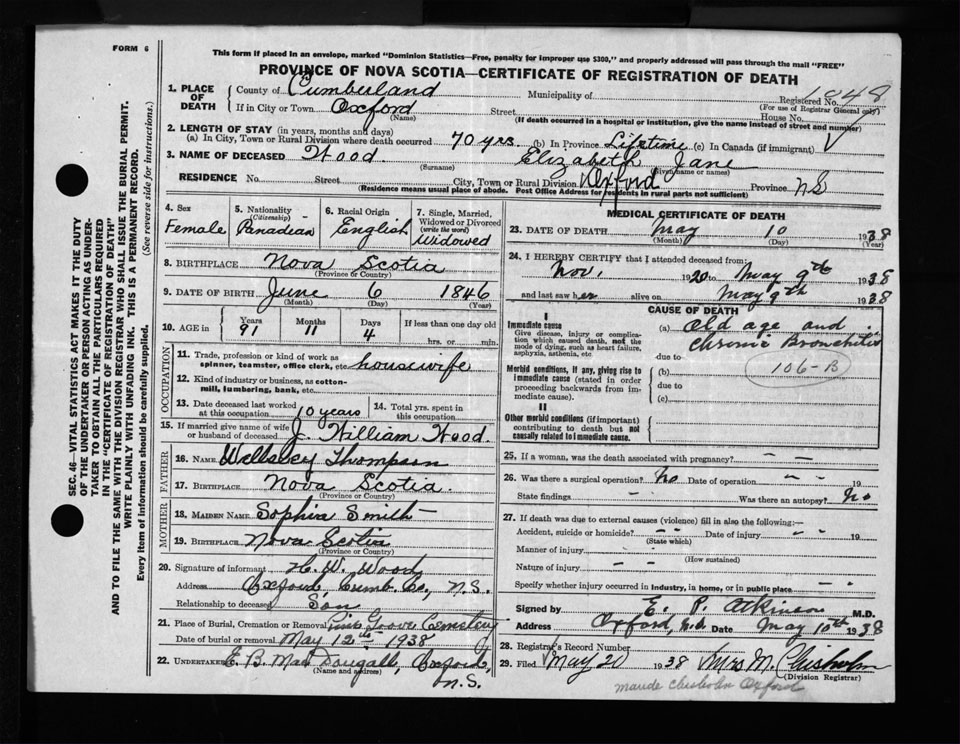 FORM 6
This form if placed in an envelope, marked "Dominion Statistics—Free, penalty for improper use $300," and properly addressed will pass through the mail "FREE"
PROVINCE OF NOVA SCOTIA—CERTIFICATE OF REGISTRATION OF DEATH
1. PLACE OF DEATH County of Cumberland Municipality of Registered No. 1848
(For use of Registrar General only)
If in City or Town Oxford Street House No.
(Name) (If death occurred in a hospital or institution, give the name instead of street and number)
2. LENGTH OF STAY (in years, months and days)
(a) In City, Town or Rural Division where death occurred 70 yrs. (b) In Province Lifetime (c) In Canada (if immigrant)
3. NAME OF DECEASED Wood Elizabeth Jane
(Surname) (Given name or names)
RESIDENCE No. Street City, Town or Rural Division Oxford Province N.S
(Residence means usual place of abode. Post Office Address for residents in rural parts not sufficient)
4. Sex Female
5. Nationality (Citizenship) Canadian
6. Racial Origin English
7. Single, Married, Widowed or Divorced (write the word) Widowed
8. BIRTHPLACE Nova Scotia
(Province or Country)
9. DATE OF BIRTH June 6 1846
(Month) (Day) (Year)
10. AGE in Years 91 Months 11 Days 4 If less than one day old hrs. or min.
OCCUPATION
11. Trade, profession or kind of work as spinner, teamster, office clerk, etc. housewife
12. Kind of industry or business, as cotton-mill, lumbering, bank, etc.
13. Date deceased last worked at this occupation 10 years
14. Total yrs. spent in this occupation
15. If married give name of wife or husband of deceased J. William Wood.
FATHER
16. NAME Wellsley Thompson
17. BIRTHPLACE Nova Scotia.
(Province or Country)
MOTHER
18. MAIDEN NAME Sophia Smith
19. BIRTHPLACE Nova Scotia
(Province or Country)
20. Signature of informant H. W. Wood
Address Oxford, Cumb. Co, N.S.
Relationship to deceased Son
21. Place of Burial, Cremation or Removal Pine Grove Cemetery
Date of burial or removal May 12th 1938
22. UNDERTAKER E. B. MacDougall, Oxford,
(Name and address)
N.S.
MEDICAL CERTIFICATE OF DEATH
23. DATE OF DEATH May 10 1938
(Month) (Day) (Year)
24. I HEREBY CERTIFY that I attended deceased from:
Nov, 1920 to May 9th 1938
and last saw her alive on May 9th 1938
CAUSE OF DEATH
I
Immediate cause
Give disease, injury or complication which caused death, not the mode of dying, such as heart failure, asphyxia, asthenia, etc
(a) Old age and
Chronic Bronchitis
due to
Morbid conditions, if any, giving rise to immediate cause (stated in order proceeding backwards from immediate cause).
(b) 106-B
due to
(c)
II
Other morbid conditions (if important) contributing to death but not causally related to immediate cause.
25. If a woman, was the death associated with pregnancy? – –
26. Was there a surgical operation? No Date of operation – – 19
State findings – – Was there an autopsy? No
27. If death was due to external causes (violence) fill in also the following:—
Accident, suicide or homicide? – – Date of injury – – 19
(State which)
Manner of injury – –
(How sustained)
Nature of injury – –
Specify whether injury occurred in industry, in home, or in public place – –
Signed by E. P. Atkinson M.D.
Address Oxford, N.S. Date May 10th 1938
28. Registrar's Record Number
29. Filed May 20 1938 Mrs M. Chisholm
(Division Registrar)
maude chisholm Oxford
SEC. 46—VITAL STATISTICS ACT MAKES IT THE DUTY
OF THE UNDERTAKER OR PERSON ACTING AS UNDER-
TAKER TO OBTAIN ALL THE PARTICULARS REQUIRED
IN THE "CERTIFICATE OF REGISTRATION OF DEATH"
AND TO FILE THE SAME WITH THE DIVISION REGISTRAR WHO SHALL ISSUE THE BURIAL PERMIT.
WRITE PLAINLY WITH UNFADING INK. THIS IS A PERMANENT RECORD.
Every item of information should be carefully supplied. (See reverse side for instructions.)